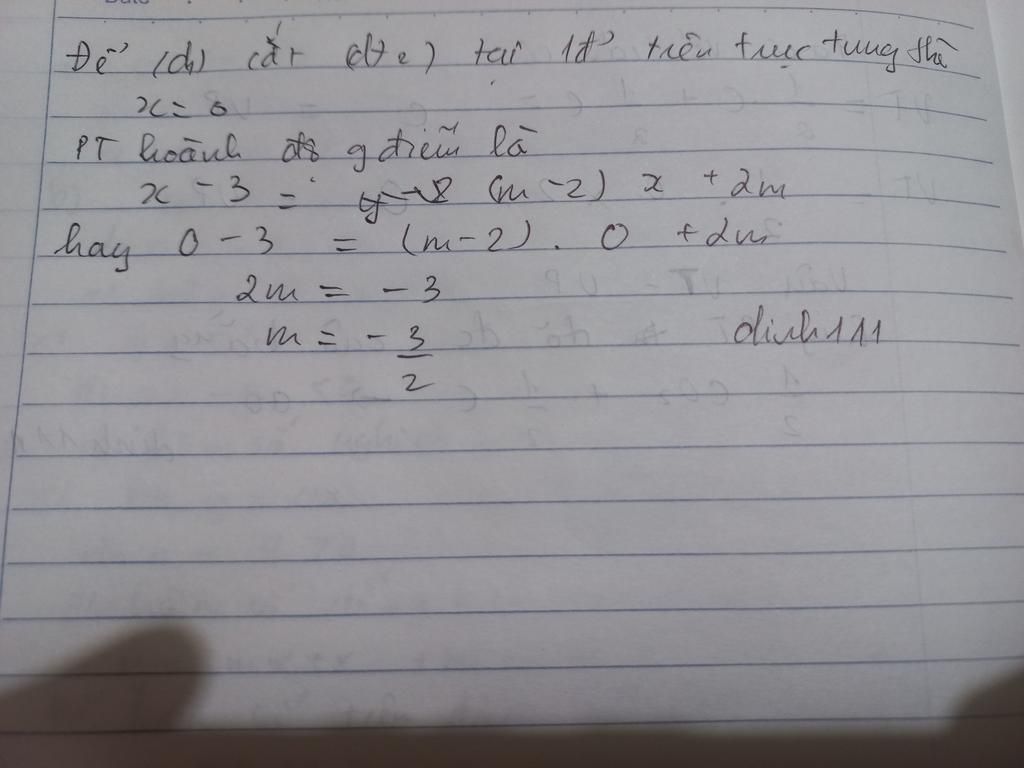 Để (d) cắt (d2) tại 1đ' trên trục tung thì
x = 0
PT hoành độ g điểm là
x - 3 = (m - 2) x + 2m
hay 0 - 3 = (m - 2) . 0 + 2m
2m = - 3
m = - 3/2
dinh111